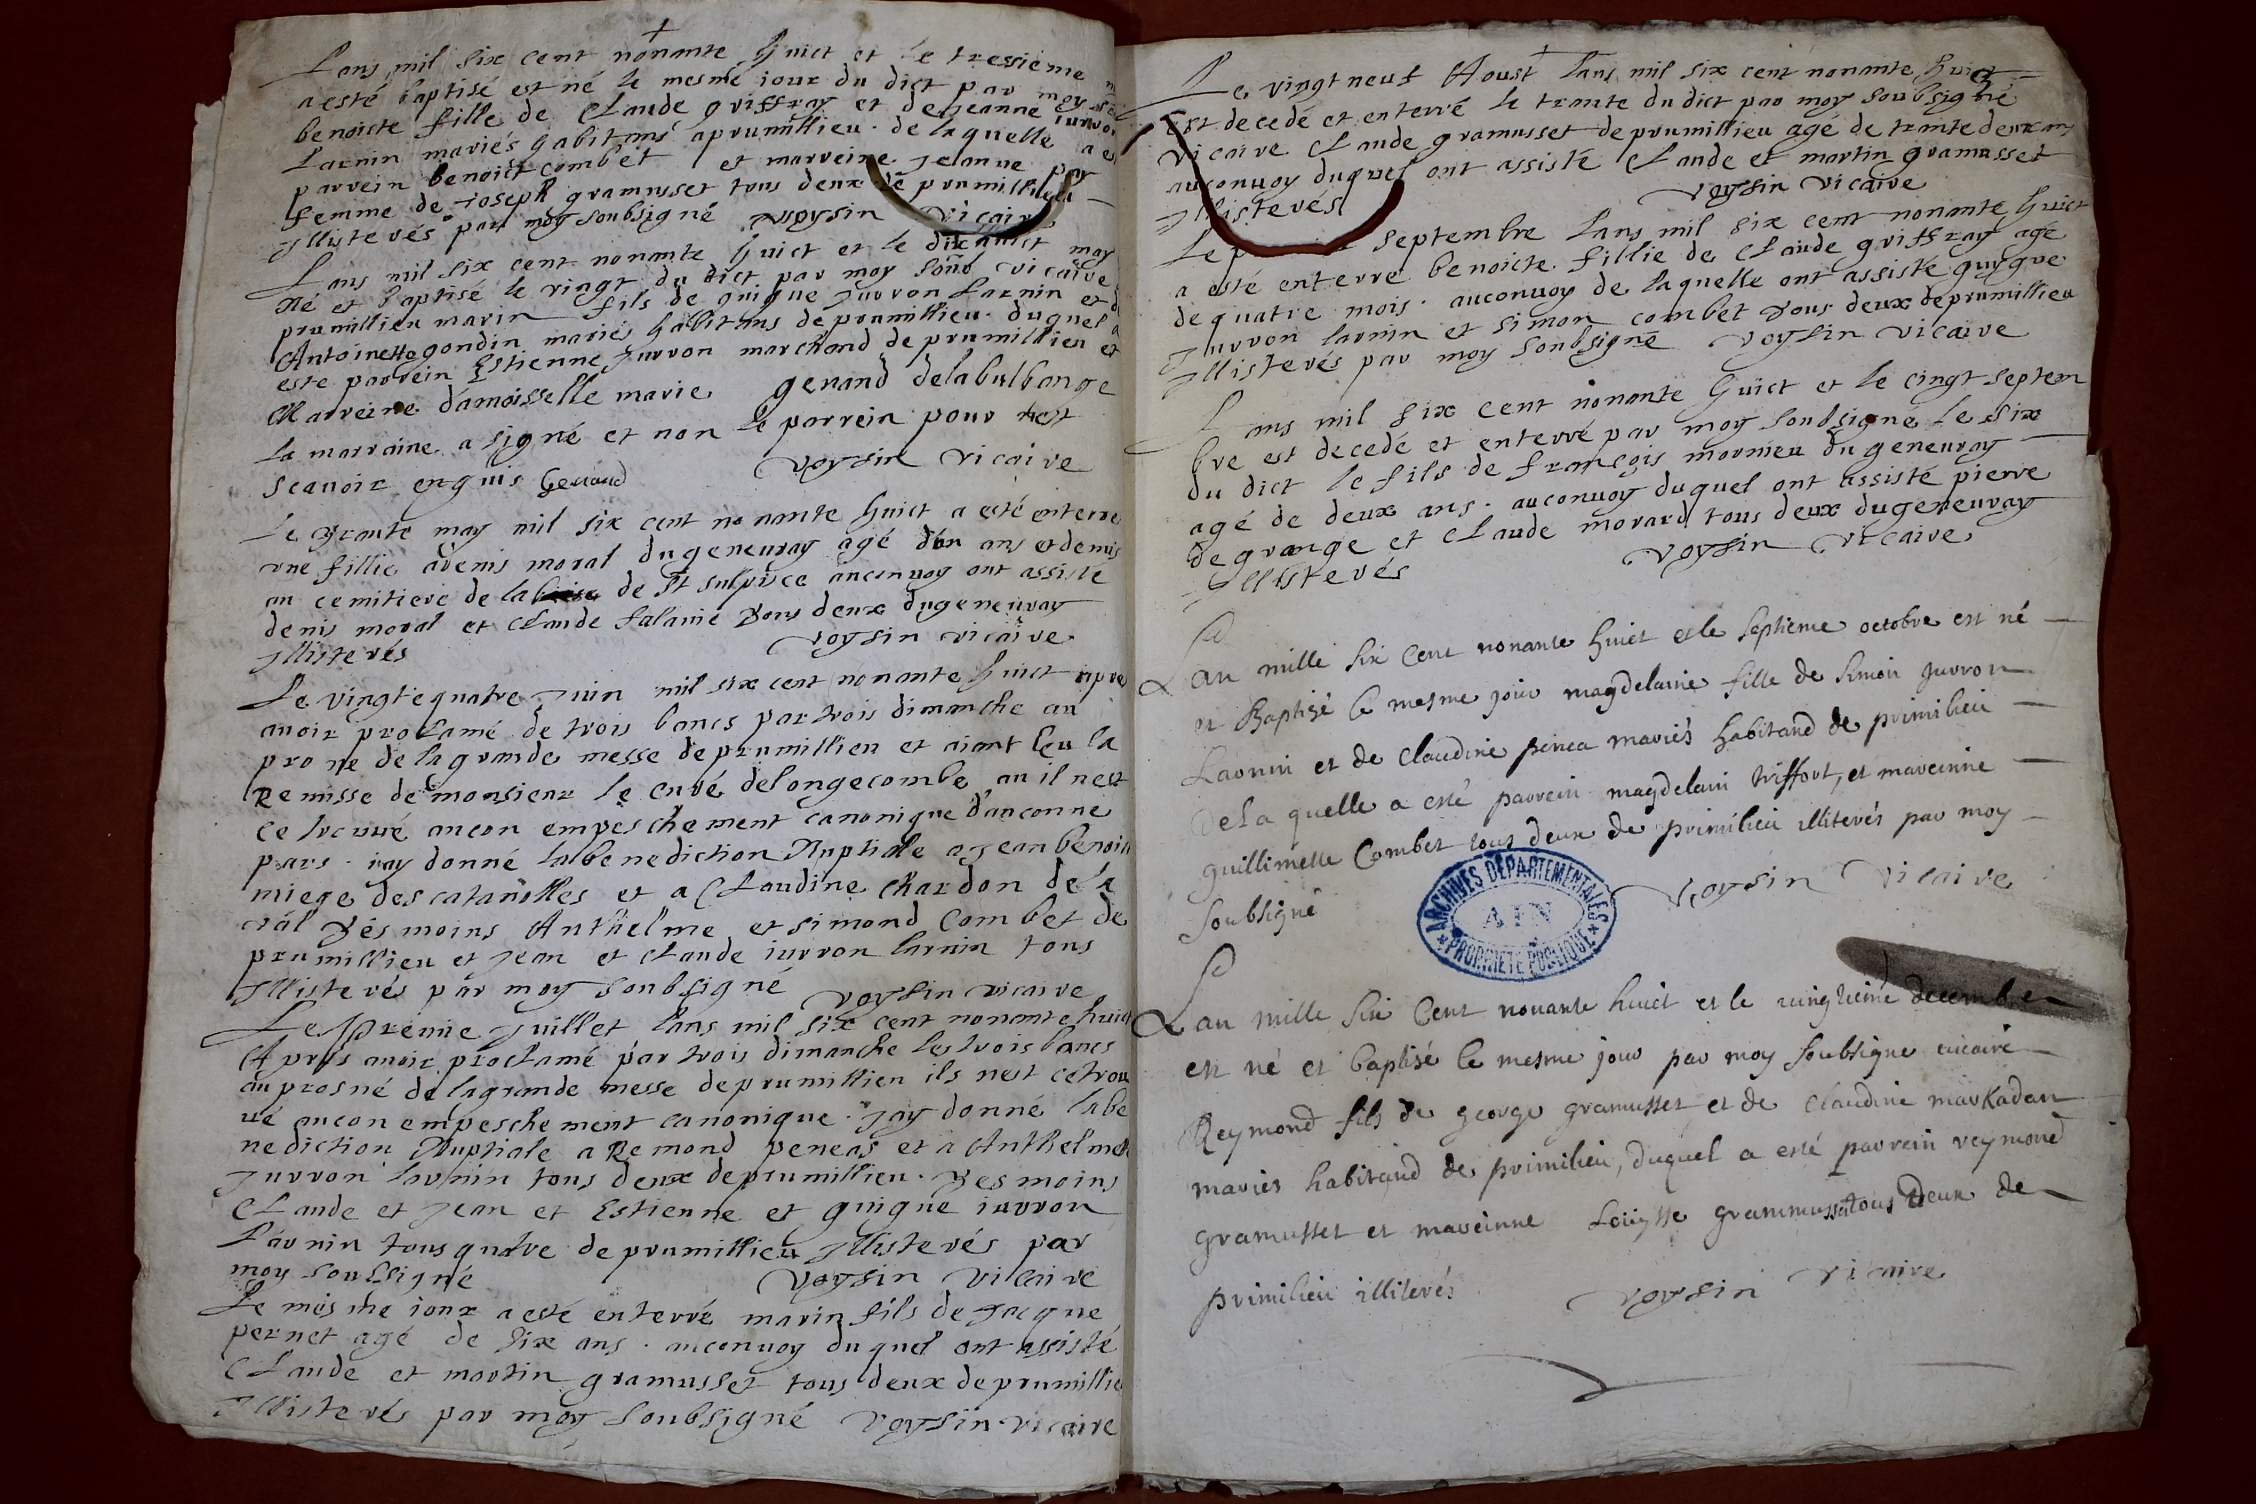 Lans mil six cent nonante huict et le tressieme
a esté baptisé est né le mesme iour du dict par moy
benoiste fille de Claude griffray et de Jeanne iurron
Larnin mariés habitans a prumillieu. de laquelle a
parrein benoict combet et marreine Jeanne
femme de Joseph gramusset tous deux de prumillieu
Illisterés par moy soubsigné voysin vicaire
Lans mil six cent nonante huict et le dixhuict may
Né et baptisé le vingt du dict par moy soub vicaire
prumillieu marin fils de guigue Jurron Larnin et d
Antoinette gondin mariés habitans de prumillieu. duquel a
este parrein Estienne Jurron marchand de prumillieu et
Marreine damoisselle marie genand delabulbange
la marraine a signé et non le parrein pour nest
scauoir enquis Genand voysin vicaire
Le trante may mil six cent nonante huict a esté enterré
vne fillie a denis moral du geneuray agé dun ans et demis
au cemitiere de de St sulpisce auconuoy ont assisté
denis moral et Claude falauie tous deux dugeneuray
Illisterés voysin vicaire
Le vingt e quatre Juin mil six cent nonante huict apre
auoir proclamé de trois bancs par trois dimanche au
prone de la grande messe de prumillieu et aiant leu la
Remisse de monsieur le curé delongecombe, au il nest
ce trouué aucon empeschement canonique d'auconne
pars. iay donné la benediction Nuptiale a Jean benoict
miege des catanolles et a Claudine chardon de
tesmoins Anthelme et simond Combet de
prumillieu et Jean et Claude iurron larnin tous
Illisterés par moy soubsigné voysin vicaire
Le premie Juillet lans mil six cent nonante huict
Apres auoir proclamé par trois dimanche les trois bancs
au prosné de la grande messe de prumillieu ils nest ce trou
ué aucon empeschement canonique. Jay donné la be
nediction Nuptiale a Remond peneas et a Anthelme
Jurron larnin tous deux deprumillieu. Tesmoins
Claude et Jean et Estienne et guigue iurron
Larnin tous quatre de prumillieu Illisterés par
moy soubsigné voysin vicaire
Le mesme iour a esté enterré marin fils de Jacque
pernet agé de six ans. auconuoy duquel ont assisté
Claude et martin gramusset tous deux de prumillie
Illisterés par moy soubsigné voysin vicaire
Le vingt neuf Aoust lans mil six cent nonante huict
Est decedé et enterré le trante du dict par moy soubsigné
vicaire Claude gramusset de prumillieu agé de trante deux ans
auconuoy duquel ont assisté Claude et martin gramusset
Illisterés voysin vicaire
Le septembre lans mil six cent nonante huict
a esté enterre benoicte fillie de Claude griffray agé
de quatre mois. auconuoy de laquelle ont assisté guygue
Jurron larnin et simon combet tous deux de prumillieu
Illisterés par moy soubsigné voysin vicaire
Lans mil six cent nonante huict et le cingt septem
bre est decedé et enterré par moy soubsigné le six
du dict le fils de françois mornieu du geneuray
agé de deux ans. auconuoy duquel ont assisté pierre
de grange et Claude morard tous deux dugeneuray
Illisterés voysin vicaire
Lan mille six cent nonante huict et le septieme octobre est né
et Baptizé le mesme jour magdelaine fille de simon Jurron
Larnin et de Claudine penea mariés habitand de primilieu
de la quelle a esté parrein magdelain triffort, et mareinne
guillimette Combet tous deux de primilieu illiterés par moy
soubsigné voysin vicaire
ARCHIVES DEPARTEMENTALES
AIN
PROPRIETE PUBLIQUE
Lan mille six cent nonante huict et le decembre
est né et baptisé le mesme jour par moy soubsigne vicaire
Reymond fils de george gramusset et de Claudine markadan
mariés habitand de primilieu, duquel a esté parrein reymond
gramusset et mareinne Loüysse grammusset tous deux de
primilieu illiterés voysin vicaire